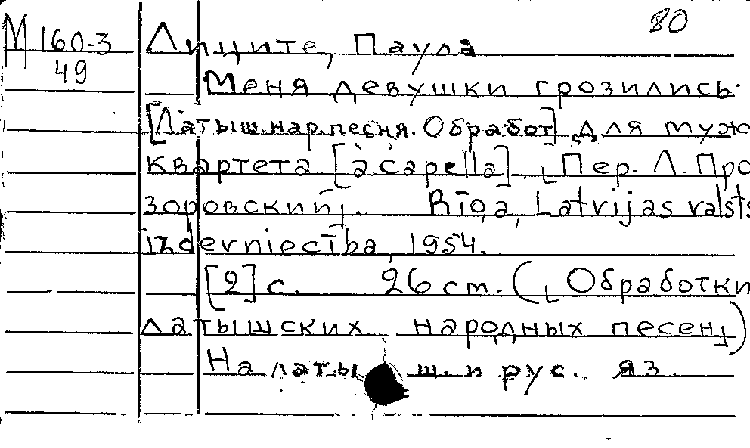 80
М 160-3 Лиците, Паула
49
Меня девушки грозились.
[Латыш. нар. песня. Обработ] для муж
квартета [a capella] [Пер. Л. Про
зоровский]. Rīga, Latvijas valsts
izdevniecība, 1954.
[2] с. 26 см. ([Обработки
латышских народных песен])
На латыш. и рус. яз.